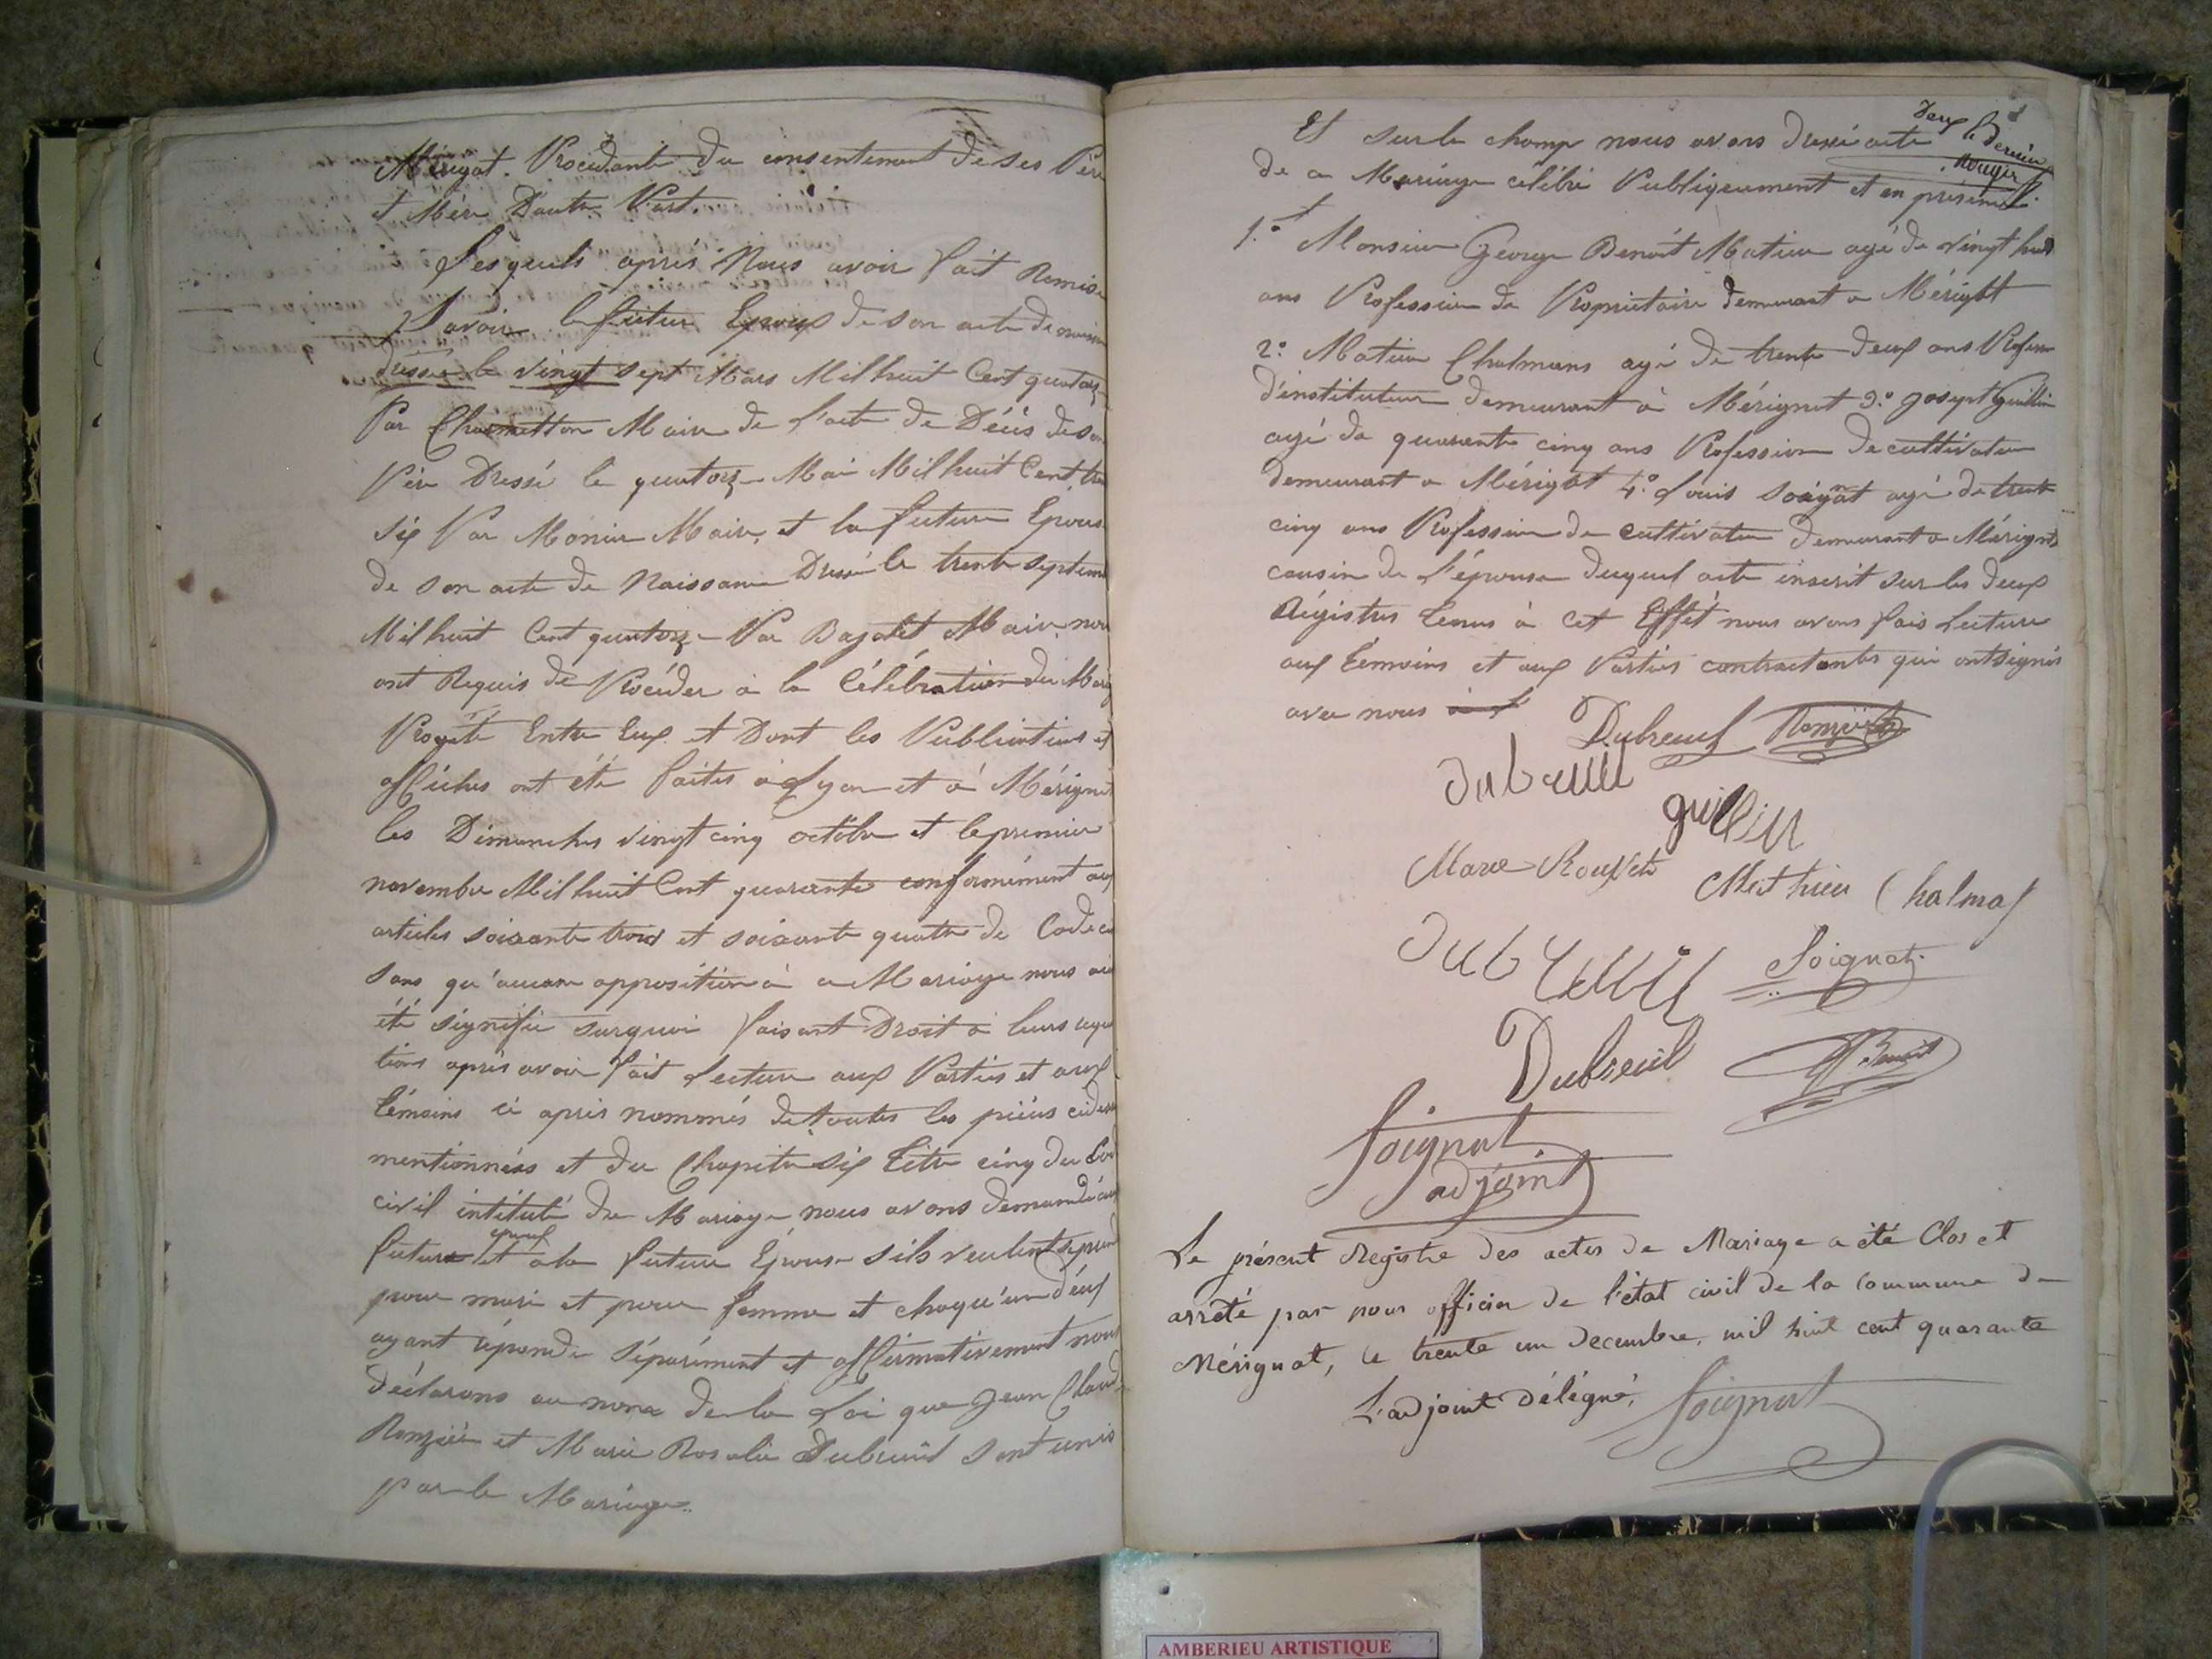 Mérignat. Procédante du consentement de ses Père
et Mère D'autre Part.
Lesquels après Nous avoir fait Remise
Savoir le futur Epoux de son acte de naissan
dressé le vingt sept Mars Mil huit Cent quatorz
Par Charmetton Maire de l'acte de Décès de son
Père Dressé le quatorz Mai Mil huit Cent tren
six Par Monier Maire, et la future Epouse
de son acte de Naissance Dressé le trente septemb
Mil huit Cent quatorz Par Bajolet Maire, nous
ont Requis de Procéder à la Célébration du Mari
Projeté Entre Eux et Dont les Publications et
affiches ont été faites à Lyon et à Mérignat
les Dimanches vingt cinq octobre et le premier
novembre Mil huit Cent quarante conformément aux
articles soixante trois et soixante quatre de Code ci
sans qu'aucune opposition à ce Mariage nous ait
été signifié surquoi faisant Droit à leurs requi
tions après avoir fait Lecture aux Parties et aux
témoins ci après nommés de toutes les pièces cidess
mentionnées et du Chapitre six titre cinq du Cod
civil intitulé du Mariage nous avons demandé au
epoux
futur et à la future Epouse s'ils veulent se prend
pour mari et pour femme et chaqu'un d'eux
ayant répondu séparément et affirmativement nous
déclarons au nom de la Loi que Jean Claud
Ronzière et Marie Rosalie Dubreuil sont unis
par le Mariage.
Et sur le champ nous avons dressé acte
de ce Mariage célébré Publiquement et en présence
1.° Monsieur George Benoît Matieu agé de vingt huit
ans Profession de Propriétaire demeurant a Mérignat
2.° Matieu Chalmas agé de trente deux ans Profession
d'instituteur demeurant à Mérignat 3.° Josept Guillin
agé de quarante cinq ans Profession de cultivateur
demeurant a Mérignat 4.° Louis Soignat agé de trente
cinq ans Profession de cultivateur demeurant a Mérignat
cousin de l'épouse duquel acte inscrit sur les deux
Régistres tenus à cet Effét nous avons fais Lecture
aux témoins et aux Parties contractantes qui ont signés
avec nous
Dubreuil Ronzière
dubreuil
guillin
Marie Rouxete Mathieu Chalmas
dubreuil Soignat
Dubreuil Benoit
Soignat
adjoint
Le présent Registre des actes de Mariage a été Clos et
arrêté par nous officier de l'état civil de la Commune de
Mérignat, le trente un decembre, mil huit cent quarante
L'adjoint délégué, Soignat
AMBERIEU ARTISTIQUE